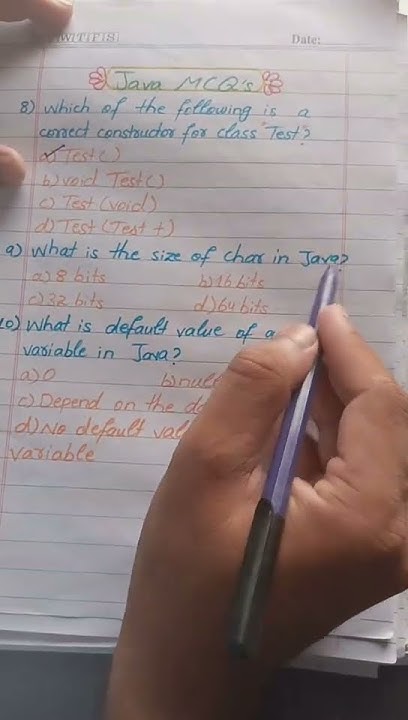 Date:
Java MCQ's
8) Which of the following is a
correct constructor for class Test?
a) Test()
b) void Test()
c) Test (void)
d) Test (Test t)
9) What is the size of char in Java?
a) 8 bits b) 16 bits
c) 32 bits d) 64 bits
10) What is default value of a
variable in Java?
a) 0 b) null
c) Depend on the
d) No default
variable